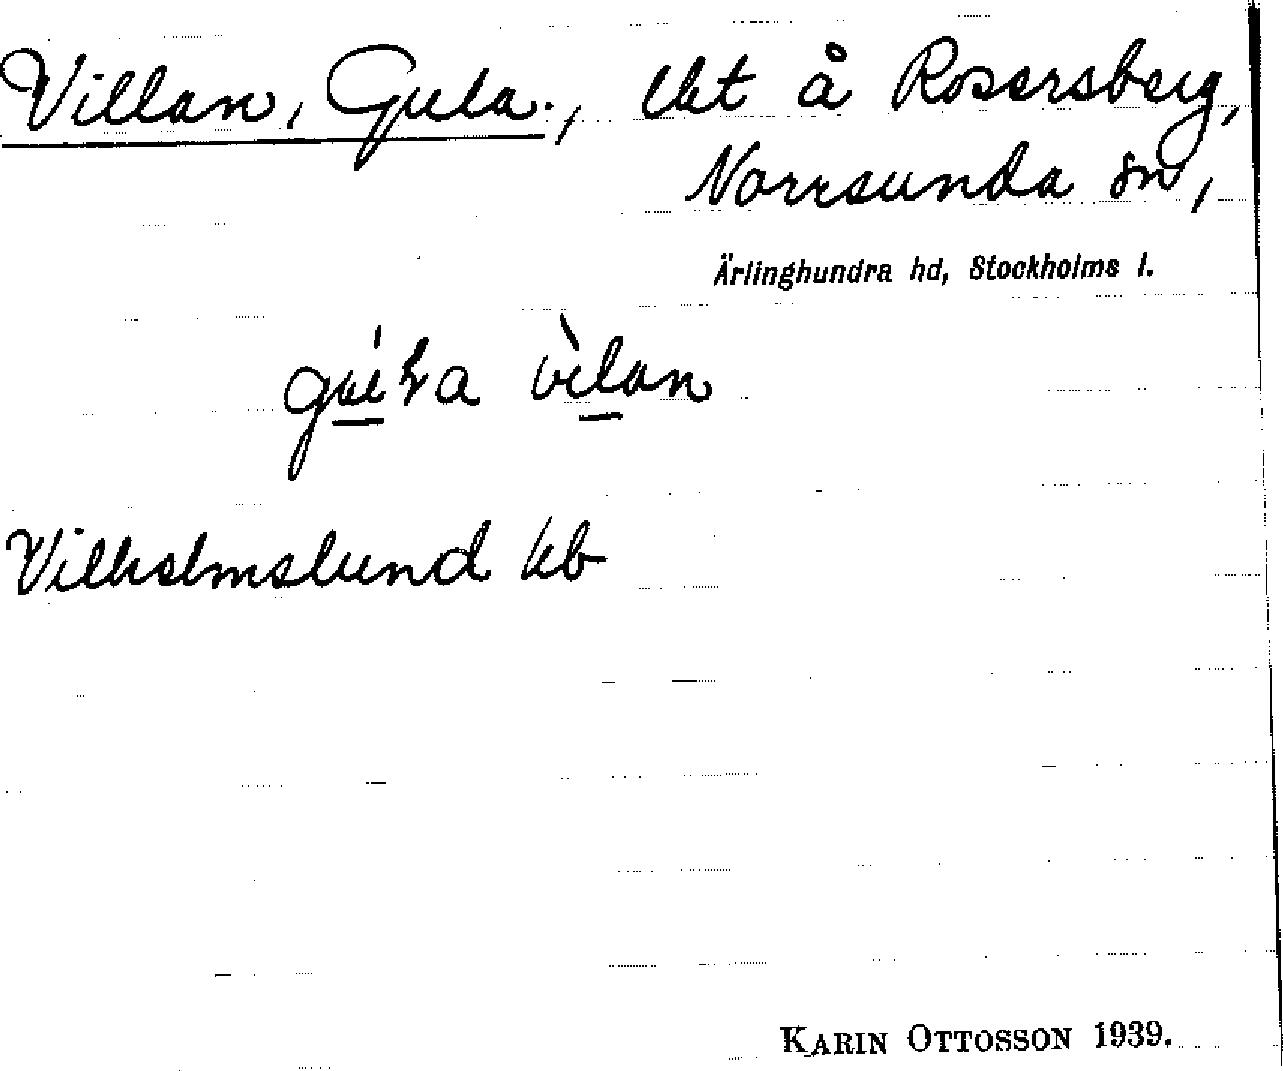 Villan, Gula., lht å Rosersberg,
Norrsunda sn,
Ärlinghundra hd, Stockholms l.
vilan
Vilhelmslund kb
KARIN OTTOSSON 1939.